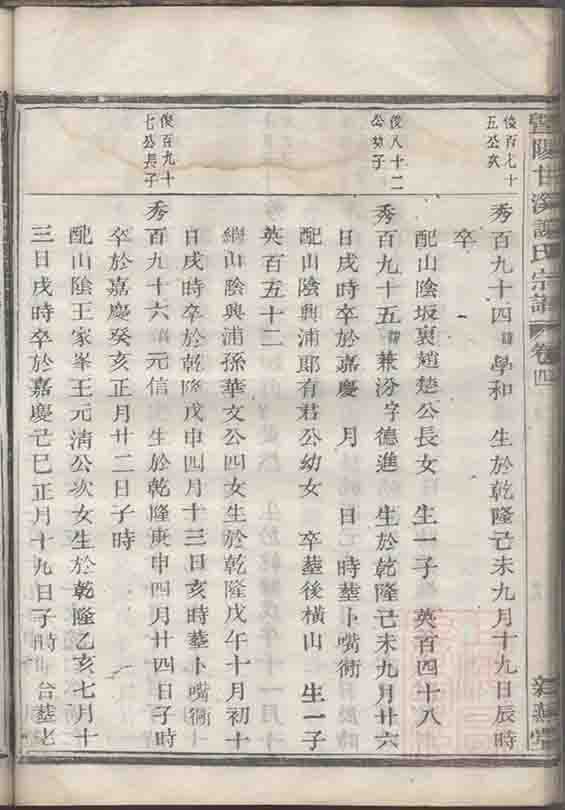 暨陽甘溪
氏宗譜
卷四
俊百九十
五公次
秀百九十四諱學和 生於乾隆己未九月十九日辰時
卒
配山陰坂裏趙楚公長女 生一子 英百四十八
俊八十二
公幼子
秀百九十五諱兼汾字德進 生於乾隆己未九月廿六
日戌時卒於嘉慶 月 日 時塟卜嘴衕
配山陰興浦郎有君公幼女 卒塟後橫山 生一子
英百五十二
繼山陰興浦孫華文公四女生於乾隆戊午十月初十
日戌時卒於乾隆戊申四月十三日亥時塟卜嘴衕
俊百九十
七公長子
秀百九十六諱元信 生於乾隆庚申四月廿四日子時
卒於嘉慶癸亥正月廿二日子時
配山陰王家峯王元清公次女生於乾隆乙亥七月十
三日戌時卒於嘉慶己巳正月十九日子時 合塟老